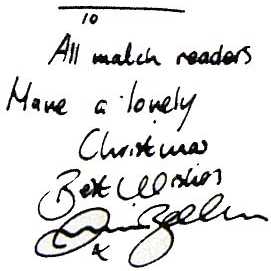 To
All match readers
Have a lovely
Christmas
Best Wishes
x